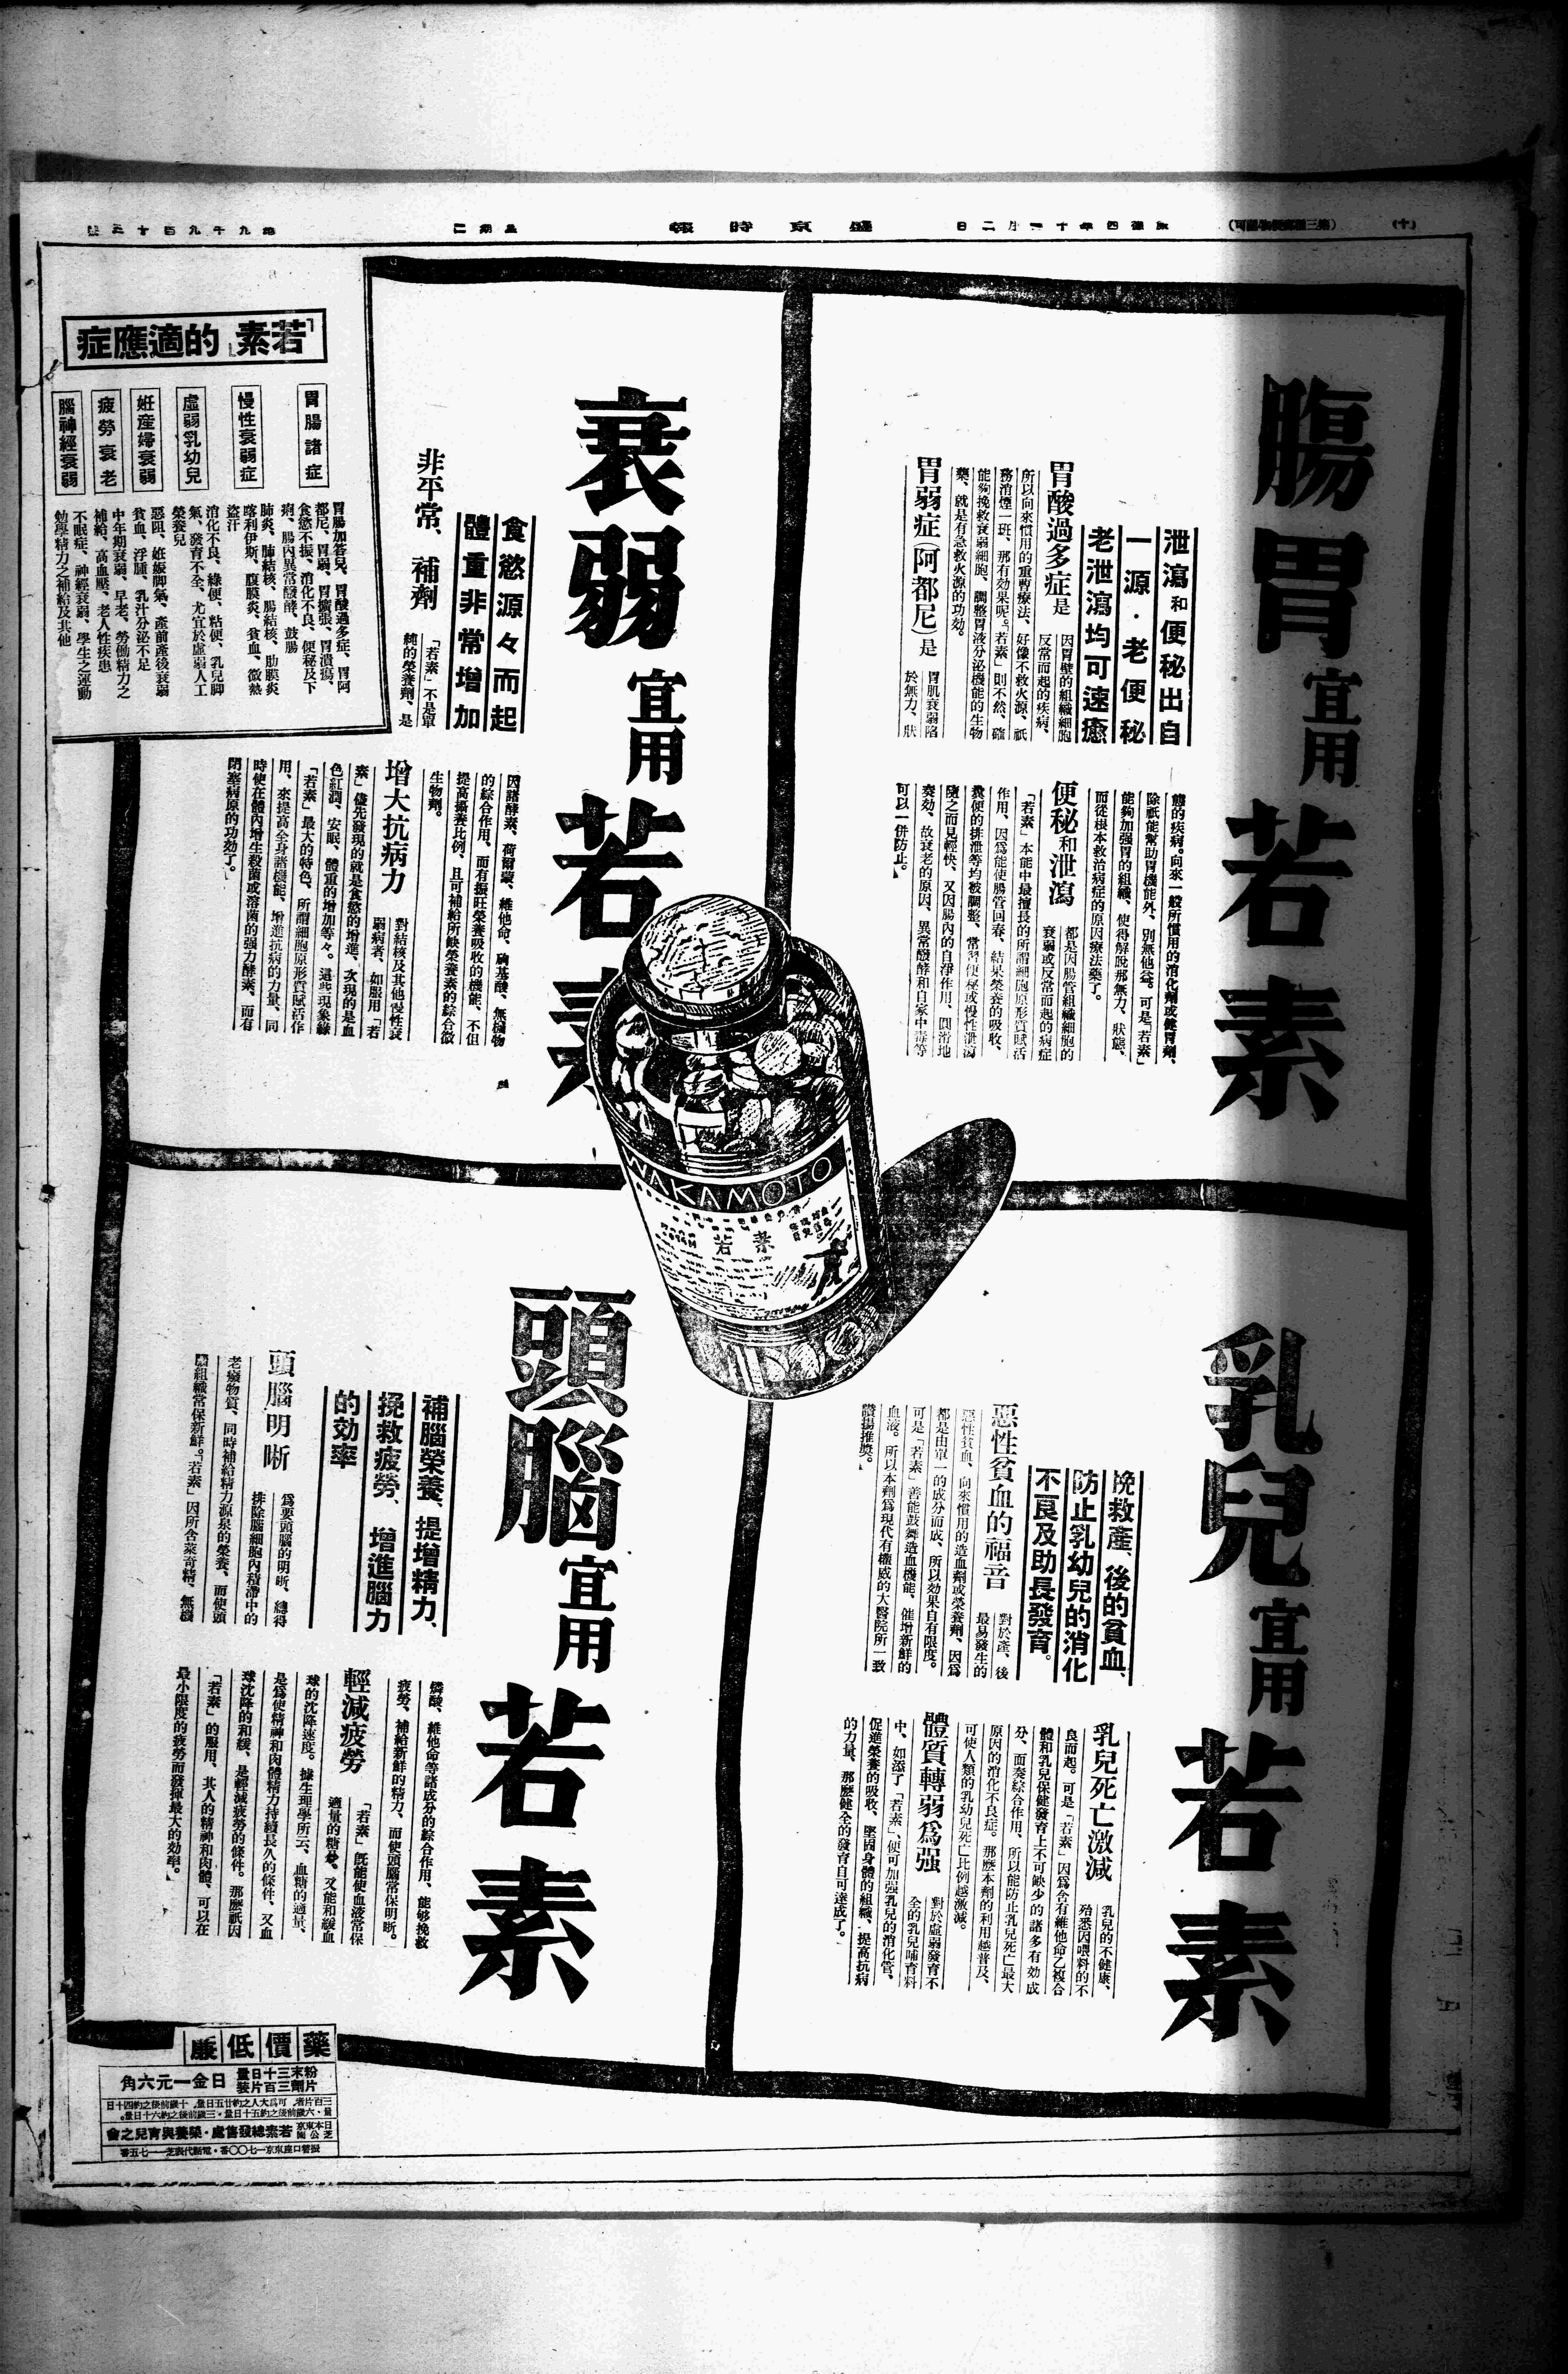 (十)
(第三種郵便物認可)
康德四年十一月二日
盛京時報
星期二
第九千九百十三號
腸胃宜用若素
泄瀉和便秘出自
一源·老便秘
老泄瀉均可速癒
胃酸過多症是
因胃壁的組織細胞
反常而起的疾病、
所以向來慣用的重曹療法、好像不救火源、祇
務消煙一班、那有効果呢。「若素」則不然、確
能夠挽救衰弱細胞、調整胃液分泌機能的生物
藥、就是有急救火源的功効。
胃弱症(阿都尼)是
胃肌衰弱陷
於無力、狀
態的疾病。向來一般所慣用的消化劑或健胃劑、
除祇能幫助胃機能外、別無他益。可是「若素」
能夠加强胃的組織、使得解脫那無力、狀態、
而從根本救治病症的原因療法藥了。
便秘和泄瀉
都是因腸管組織細胞的
衰弱或反常而起的病症
「若素」本能中最擅長的所謂細胞原形質賦活
作用、因爲能使腸管回春、結果榮養的吸收、
糞便的排泄等均被調整、常習便秘或慢性泄瀉
隨之而見輕快、又因腸內的自淨作用、圓滑地
奏効、故衰老的原因、異常醱酵和自家中毒等
可以一併防止。
衰弱宜用若素
食慾源々而起
體重非常增加
非平常、補劑
「若素」不是單
純的榮養劑、是
因諸酵素、荷爾蒙、維他命、胸基酸、無機物
的綜合作用、而有振旺榮養吸收的機能、不但
提高攝養比例、且可補給所缺榮養素的綜合微
生物劑。
增大抗病力
對結核及其他慢性衰
弱病者、如服用「若
素」儘先發現的就是食慾的增進、次現的是血
色紅潤、安眠、體重的增加等々。這些現象緣
「若素」最大的特色、所謂細胞原形質賦活作
用、來提高全身諸機能、增進抗病的力量、同
時使在體內增生殺菌或溶菌的强力酵素、而有
閉塞病原的功効了。
「若素」的適應症
胃腸諸症
胃腸加答兒、胃酸過多症、胃阿
都尼、胃弱、胃擴張、胃潰瘍、
食慾不振、消化不良、便秘及下
痢、腸內異常醱酵、鼓腸
慢性衰弱症
肺炎、肺結核、腸結核、肋膜炎
喀利伊斯、腹膜炎、貧血、微熱
盜汗
虛弱乳幼兒
消化不良、綠便、粘便、乳兒脚
氣、發育不全、尤宜於虛弱人工
榮養兒
姙產婦衰弱
惡阻、姙娠脚氣、產前產後衰弱
貧血、浮腫、乳汁分泌不足
疲勞衰老
中年期衰弱、早老、勞働精力之
補給、高血壓、老人性疾患
腦神經衰弱
不眠症、神經衰弱、學生之運動
勉學精力之補給及其他
WAKAMOTO
若素
乳兒宜用若素
挽救產、後的貧血、
防止乳幼兒的消化
不良及助長發育。
惡性貧血的福音
對於產、後
最易發生的
惡性貧血、向來慣用的造血劑或榮養劑、因爲
都是由單一的成分而成、所以効果自有限度。
可是「若素」善能鼓舞造血機能、催增新鮮的
血液。所以本劑爲現代有權威的大醫院所一致
讚揚推獎。
乳兒死亡激減
乳兒的不健康、
殆悉因喂料的不
良而起。可是「若素」因爲含有維他命乙複合
體和乳兒保健發育上不可缺少的諸多有効成
分、而奏綜合作用、所以能防止乳兒死亡最大
原因的消化不良症。那麽本劑的利用越普及、
可使人類的乳幼兒死亡比例越激減。
體質轉弱爲强
對於虛弱發育不
全的乳兒哺育料
中、如添了「若素」、便可加强乳兒的消化管、
促進榮養的吸收、堅固身體的組織、提高抗病
的力量、那麽健全的發育自可達成了。
頭腦宜用若素
補腦榮養、提增精力、
挽救疲勞、增進腦力
的効率
頭腦明晰
爲要頭腦的明晰、總得
排除腦細胞內積滯中的
老癈物質、同時補給精力源泉的榮養、而使頭
腦組織常保新鮮。「若素」因所含菜奇精、無機
憐酸、維他命等諸成分的綜合作用、能够挽救
疲勞、補給新鮮的精力、而使頭腦常保明晰。
輕減疲勞
「若素」旣能使血液常保
適量的糖分、又能和緩血
球的沈降速度。據生理學所云、血糖的適量、
是爲使精神和肉體精力持續長久的條件、又血
球沈降的和緩、是輕減疲勞的條件。那麽祇因
「若素」的服用、其人的精神和肉體、可以在
最小限度的疲勞而發揮最大的効率。
藥價低廉
粉末三十日量
片劑三百片裝
日金一元六角
三百片者、可爲大人之約廿五日量、十歲前後之約四十日
量、六歲前後之約五十日量、三歲前後之約六十日量。
日本東京芝公園
若素總發售處·榮養與育兒之會
振替口座東京一七〇〇番·電話代表芝一一七五番